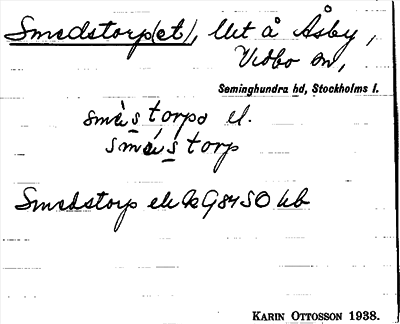 Smedstorp(et), lht å Åsby,
Vidbo sn,
Seminghundra hd, Stockholms l.
smɛ̀storpə el.
smɛ́storp
Smedstorp ek G 84 SO hb
KARIN OTTOSSON 1938.